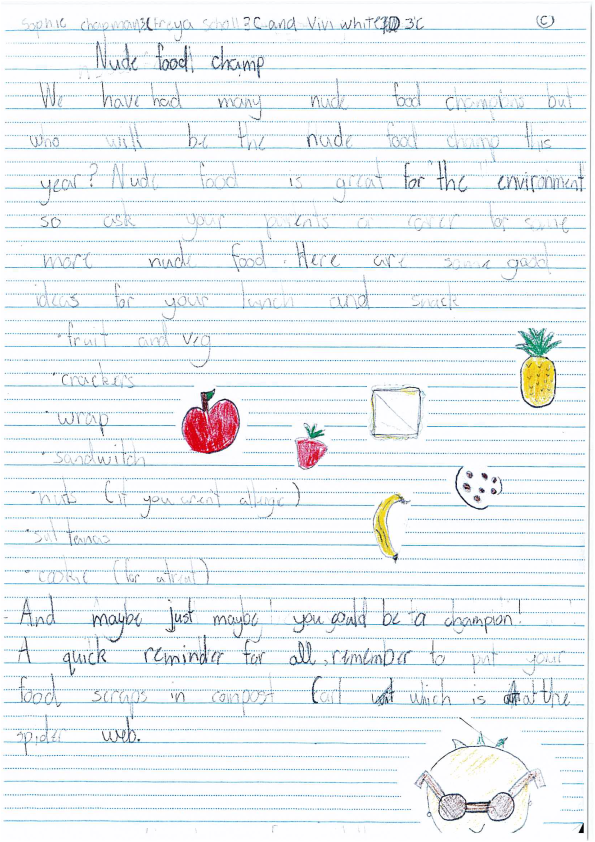 Sophie chapman3c freya scholl 3C and Vivi white 3C
C
Nude food champ
We have had many nude food champions but
who will be the nude food champ this
year? Nude food is great for the environment
so ask your parents or carer for some
more nude food. Here are some good
ideas for your lunch and snack
• fruit and vig
• crackers
• wrap
• sandwitch
• nuts (if you arent allergic)
• sultanas
• cookie (for a treat)
And maybe just maybe! you could be a champion!
A quick reminder for all, remember to put your
food scraps in compost Carl which is at the
spider web.